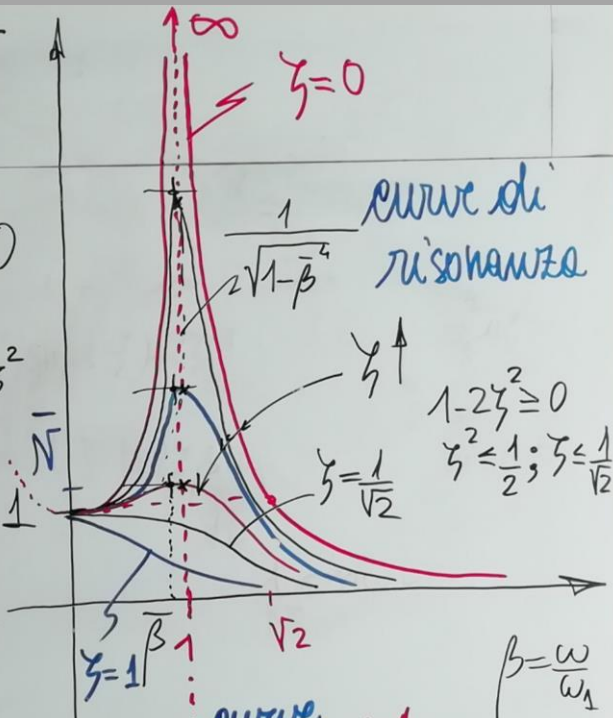 ∞
ζ=0
curve di
risonanza
1/√(1-β̄⁴)
ζ↑
1-2ζ²≥0
ζ²≤1/2; ζ≤1/√2
N̄
ζ=1/√2
1
ζ=1
β̄
1
√2
β=ω/ω₁
curve